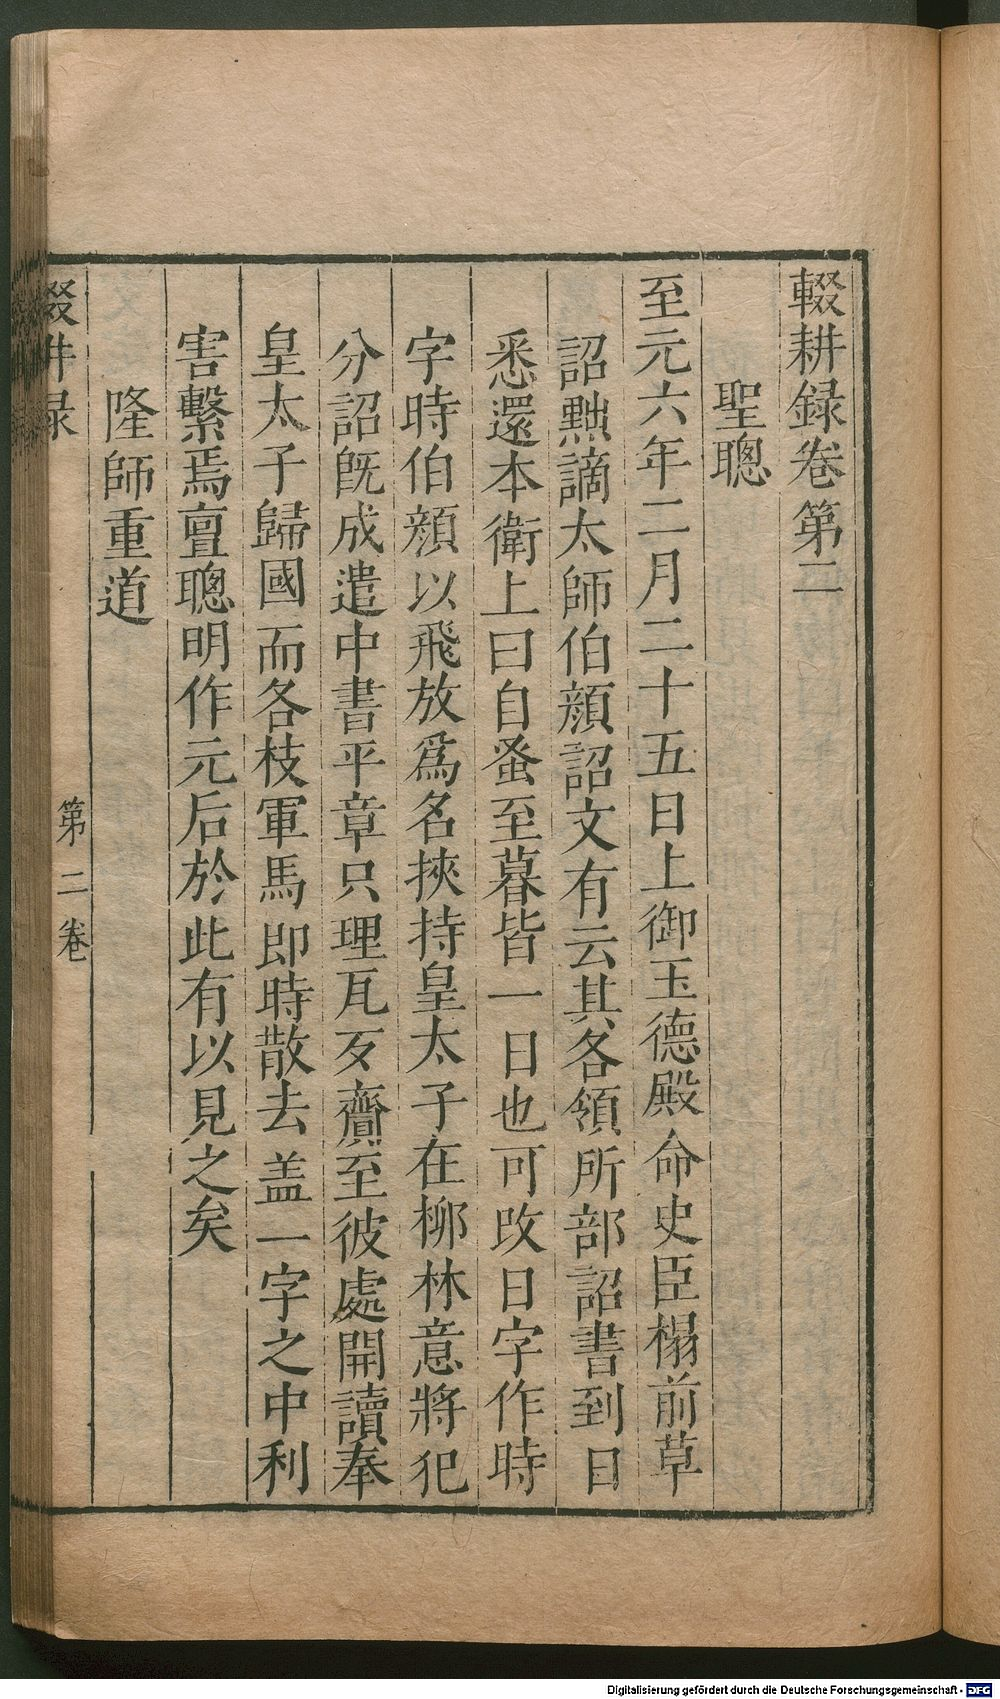 輟耕録卷第二
聖聰
至元六年二月二十五日上御玉德殿命史臣榻前草
詔黜謫太師伯顏詔文有云其各領所部詔書到日
悉還本衛上曰自蚤至暮皆一日也可改日字作時
字時伯顏以飛放爲名挾持皇太子在柳林意將犯
分詔旣成遣中書平章只理瓦歹齎至彼處開讀奉
皇太子歸國而各枝軍馬即時散去盖一字之中利
害繫焉亶聰明作元后於此有以見之矣
隆師重道
輟耕录
第二卷
Digitalisierung gefördert durch die Deutsche Forschungsgemeinschaft - DFG